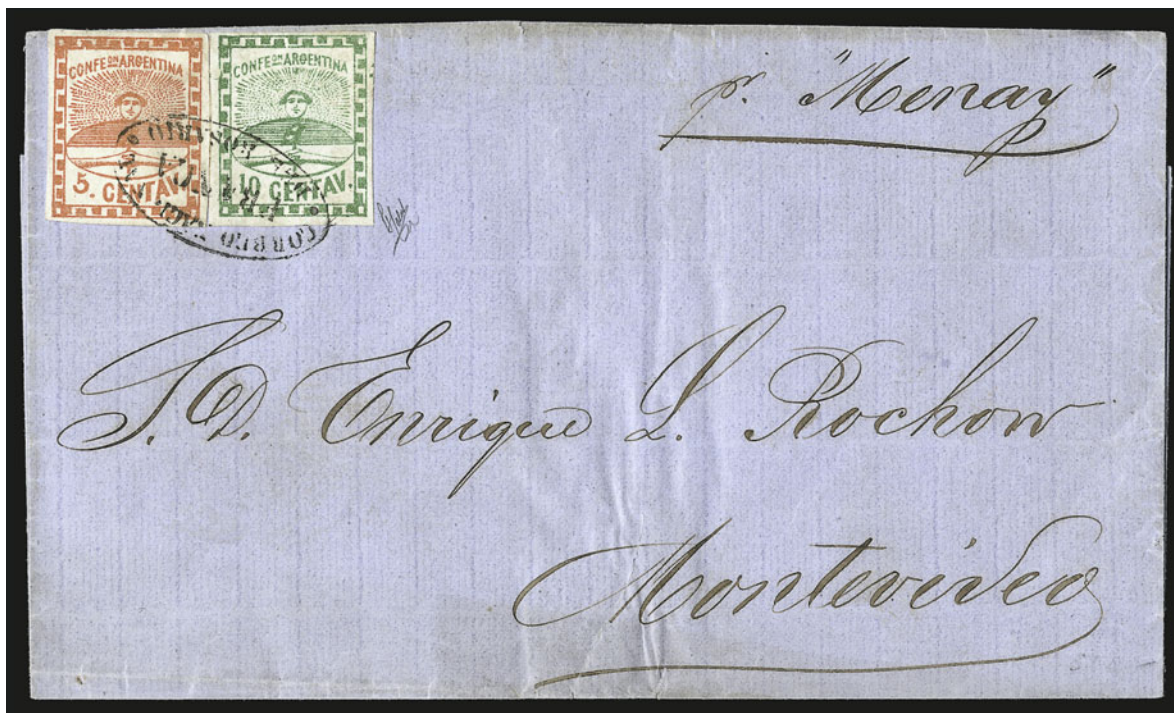 CONFEON ARGENTINA
5. CENTAV.
CONFEON ARGENTINA
10 CENTAV.
CORREO NACL. DEL ROSARIO
FRANCA
p. "Menay"
S. D. Enrique L. Rochow
Montevideo